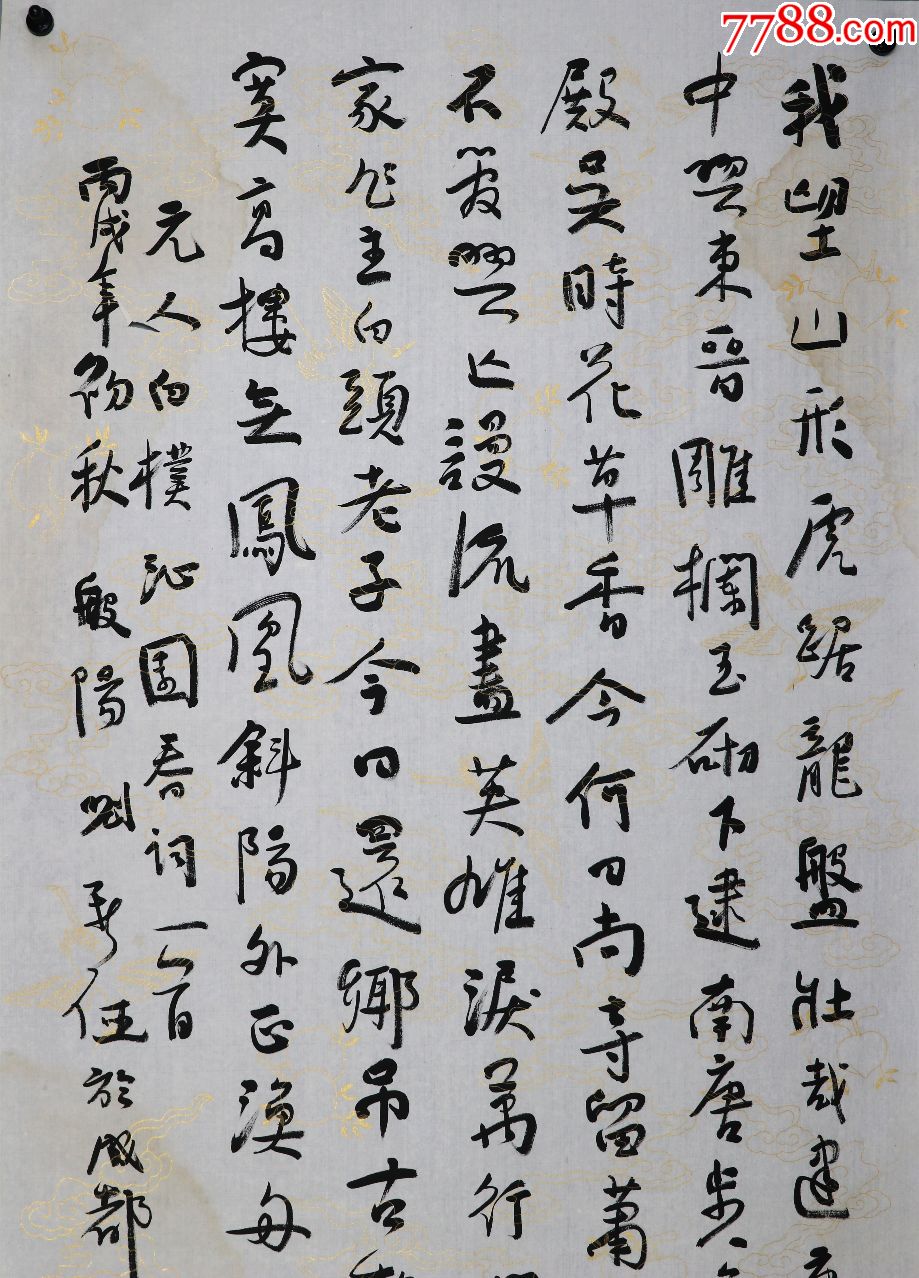 7788.com
我望山形虎踞龍盤壯哉建
中興東晉雕欄玉砌下逮南唐步
殿吳時花草香今何日尚寺留蕭
不管興亡謾流盡英雄淚萬行
家作主白頭老子今日還鄉吊古
寞高樓無鳳凰斜陽外正漁舟
元人白樸沁園春詞一首
丙戌年初秋 般陽 劉 於成都